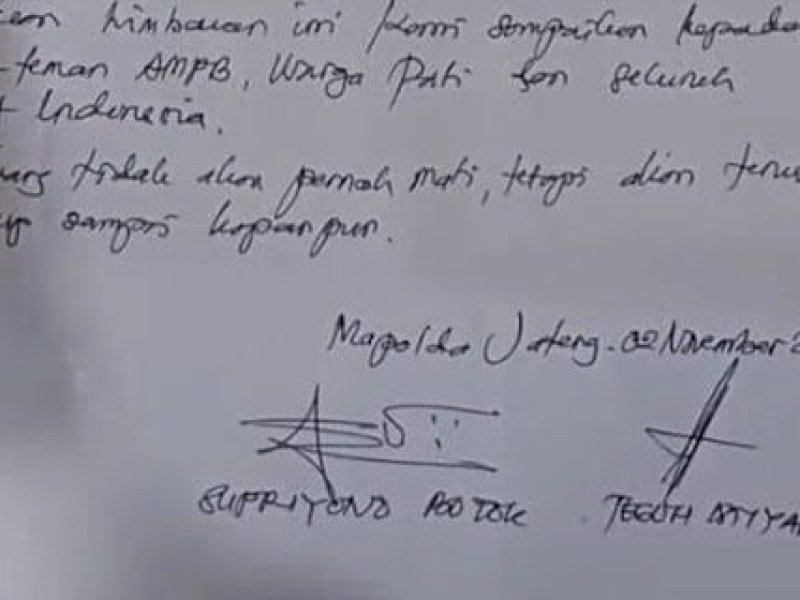 himbauan ini kami sampaikan kepada
-teman AMPB, Warga Pati dan seluruh
Indonesia.
tidak akan pernah mati, tetapi akan teru
sampai kapanpun.
Mapolda Jateng. 02 November 2
SUPRIYONO BOTOK
TEGUH ISTIYA